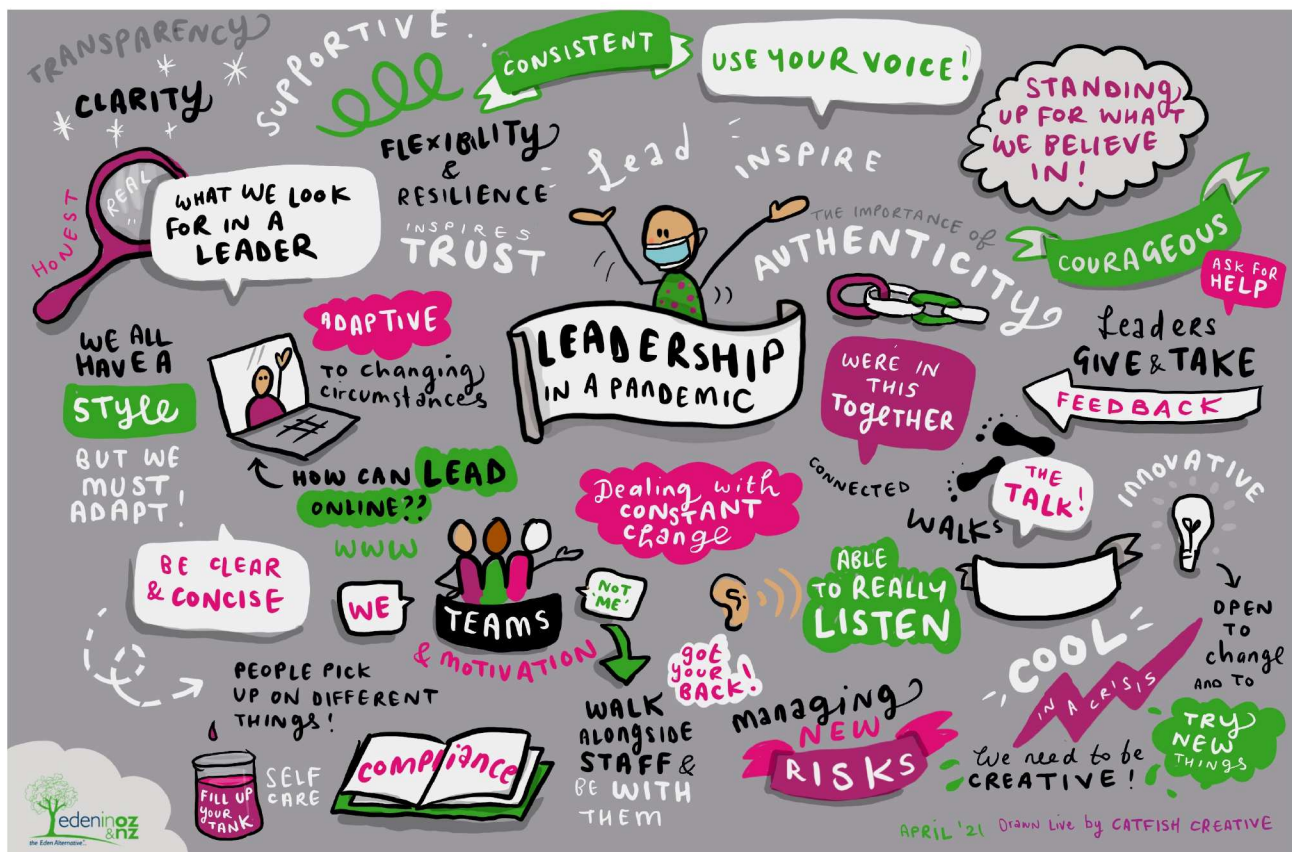 TRANSPARENCY
CLARITY
SUPPORTIVE..
CONSISTENT
USE YOUR VOICE!
STANDING
UP FOR WHAT
WE BELIEVE
IN!
HONEST
REAL
WHAT WE LOOK
FOR IN A
LEADER
FLEXIBILITY
&
RESILIENCE
INSPIRES
TRUST
Lead
INSPIRE
THE IMPORTANCE of
AUTHENTICITY
COURAGEOUS
ASK FOR
HELP
Leaders
GIVE & TAKE
FEEDBACK
WE ALL
HAVE A
STYLE
BUT WE
MUST
ADAPT!
ADAPTIVE
TO changing
circumstances
#
LEADERSHIP
IN A PANDEMIC
WERE IN
THIS
TOGETHER
CONNECTED
HOW CAN LEAD
ONLINE??
WWW
Dealing with
CONSTANT
change
WALKS
THE
TALK!
INNOVATIVE
BE CLEAR
& CONCISE
WE
TEAMS
& MOTIVATION
NOT
'ME'
ABLE
TO REALLY
LISTEN
OPEN
TO
change
AND TO
TRY
NEW
THINGS
PEOPLE PICK
UP ON DIFFERENT
THINGS!
got
your
BACK!
WALK
ALONGSIDE
STAFF &
BE WITH
THEM
managing
NEW
RISKS
COOL
IN A CRISIS
We need to be
CREATIVE!
FILL UP
YOUR
TANK
SELF
CARE
COMPLIANCE
edeninoz
&nz
the Eden Alternative
APRIL '21 Drawn Live by CATFISH CREATIVE